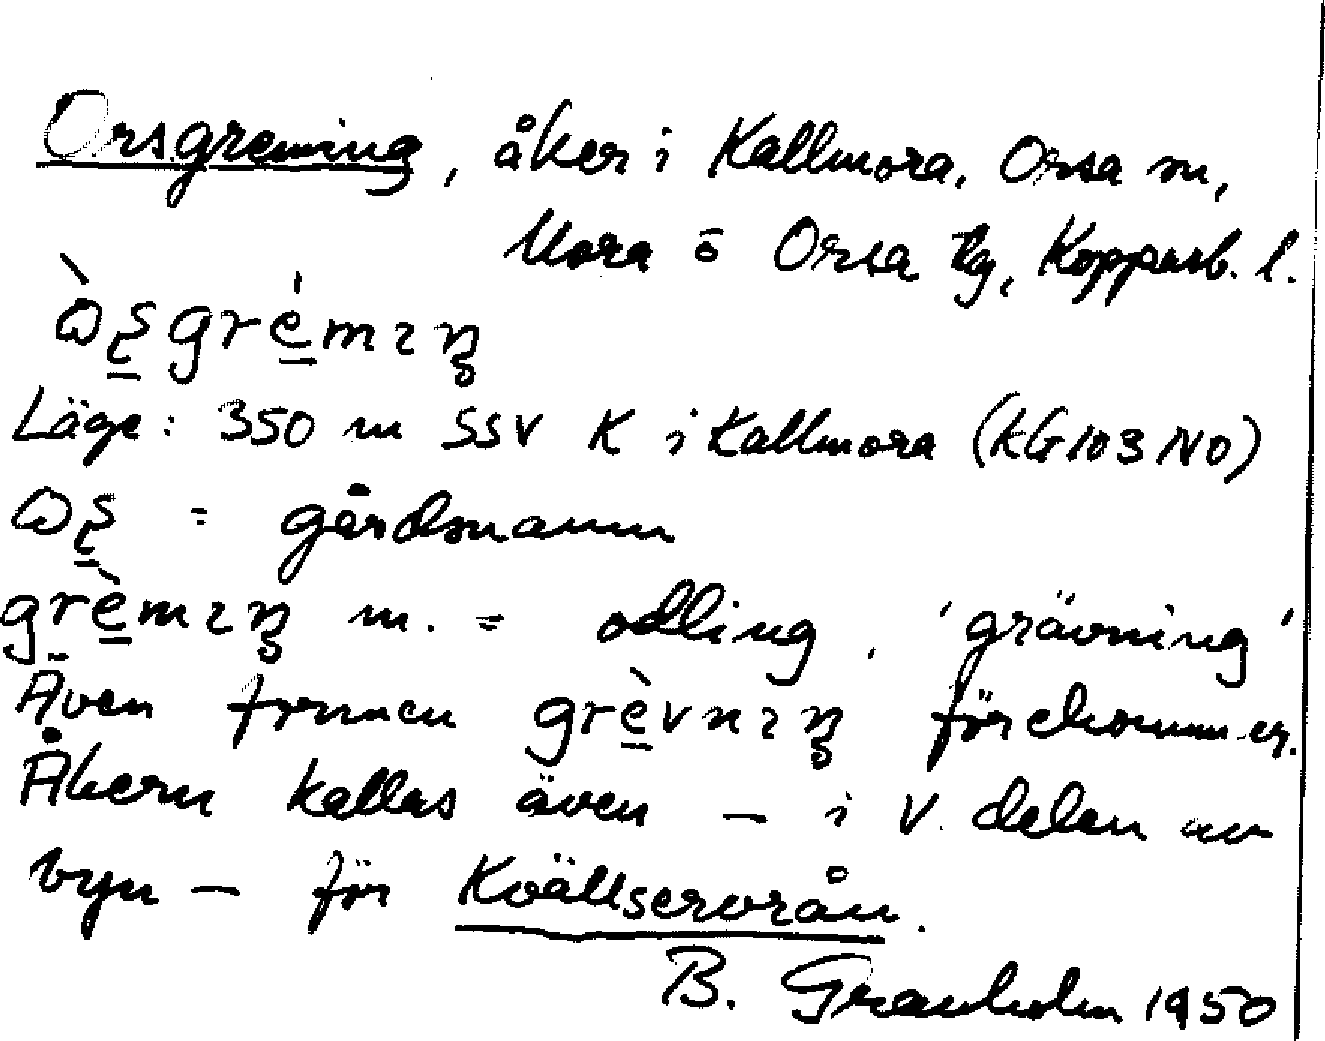 Orsgreming, åker i Kallmora, Orsa sn,
Mora o Orsa tg, Kopparb. l.
Läge: 350 m SSV K i Kallmora (KG103NO)
= gårdsnamn
m. = odling, 'grävning'
Även formen förekommer.
Åkern kallas även – i V. delen av
byn – för Kvällservorån.
B. Granholm 1950